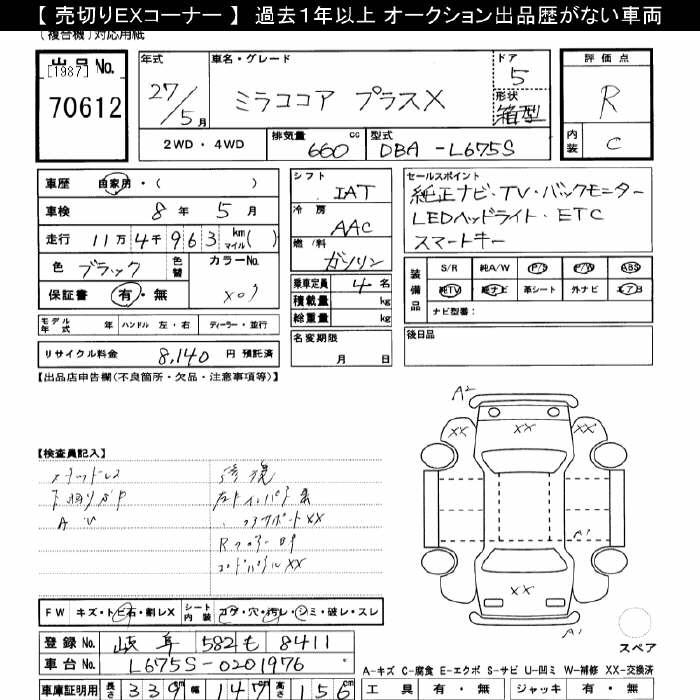 【 売切りEXコーナー 】 過去1年以上 オークション出品歴がない車両
(複合機)対応用紙
出品 No.
[1987]
70612
年式
27/5月
車名・グレード
ミラココア プラスX
ドア
5
形状
箱型
評価点
R
内装
C
2WD・4WD
排気量 660 cc
型式 DBA-L675S
車歴 自家用・( )
車検 8年 5月
走行 11万4千963 km マイル( )
色 ブラック 色替
カラーNo. X07
保証書 有・無
シフト IAT
冷房 AAC
燃料 ガソリン
乗車定員 4名
積載量 kg
総重量 kg
名変期限
月 日
セールスポイント
純正ナビ・TV・バックモニター
LEDヘッドライト・ETC
スマートキー
装備品
S/R 純A/W P/S P/W ABS
純TV 純ナビ 革シート 外ナビ エアB
ナビ型番:
後日品
モデル年式 年 ハンドル 左・右 ディーラー・並行
リサイクル料金 8,140 円 預託済
【出品店申告欄(不良箇所・欠品・注意事項等)】
【検査員記入】
修復
A2
XX XX XX
A1
XX
A1
スペア
FW キズ・トビ石・割レX シート内装 コゲ・穴・汚レ・シミ・破レ・スレ
登録 No. 岐阜 582 も 8411
車台 No. L675S-0201976
A-キズ C-腐食 E-エクボ S-サビ U-凹ミ W-補修 XX-交換済
車庫証明用 長さ 339cm 幅 147cm 高さ 156cm
工具 有・無 ジャッキ 有・無